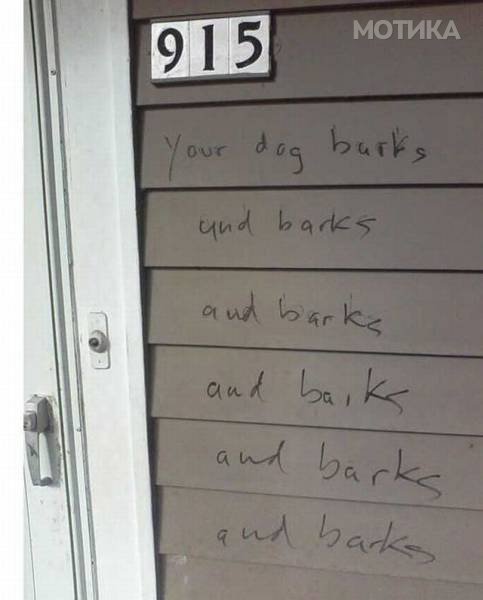 МОТИКА
915
Your dog barks
and barks
and barks
and barks
and barks
and barks